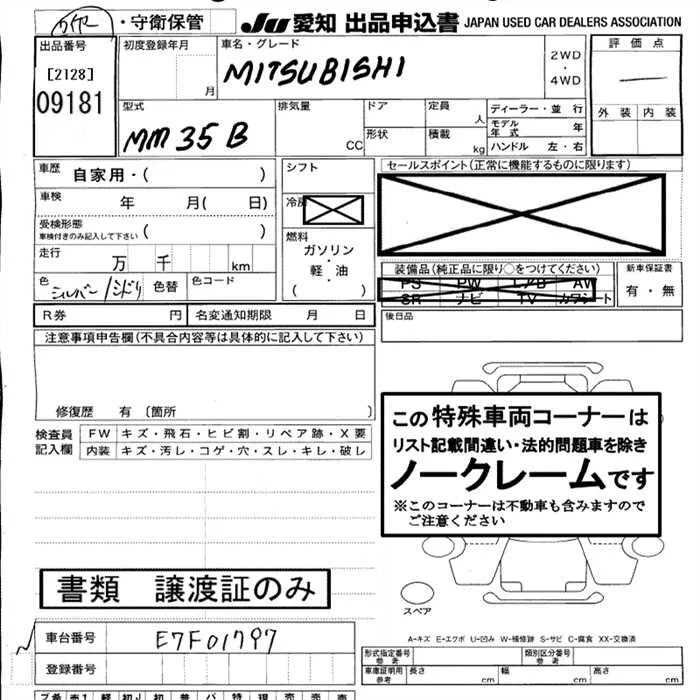 ・守衛保管
JU 愛知 出品申込書 JAPAN USED CAR DEALERS ASSOCIATION
出品番号
[2128]
09181
初度登録年月
月
車名・グレード
MITSUBISHI
2WD
・
4WD
評価点
外装 内装
型式
MM35B
排気量
CC
ドア
形状
定員
人
積載
kg
ディーラー・並 行
モデル年式 年
ハンドル 左・右
車歴 自家用・( )
車検 年 月( 日)
受検形態
車検付きのみ記入して下さい ( )
走行 万 千 km
色 シルバー/ミドリ 色替 色コード
シフト
冷房
燃料
ガソリン
・
軽・油
( )
セールスポイント(正常に機能するものに限ります)
装備品(純正品に限り○をつけてください)
PS PW エアB AW
SR ナビ TV カワシート
新車保証書
有・無
後日品
R券 円 名変通知期限 月 日
注意事項申告欄(不具合内容等は具体的に記入して下さい)
修復歴 有 〔箇所 〕
検査員
記入欄
FW キズ・飛石・ヒビ割・リペア跡・X要
内装 キズ・汚レ・コゲ・穴・スレ・キレ・破レ
この特殊車両コーナーは
リスト記載間違い・法的問題車を除き
ノークレームです
※このコーナーは不動車も含みますので
ご注意ください
書類 譲渡証のみ
スペア
A-キズ E-エクボ U-凹み W-補修跡 S-サビ C-腐食 XX-交換済
車台番号 E7F01797
登録番号
形式指定番号
参考
類別区分番号
参考
車庫証明用
参考
長さ cm 幅 cm 高さ cm